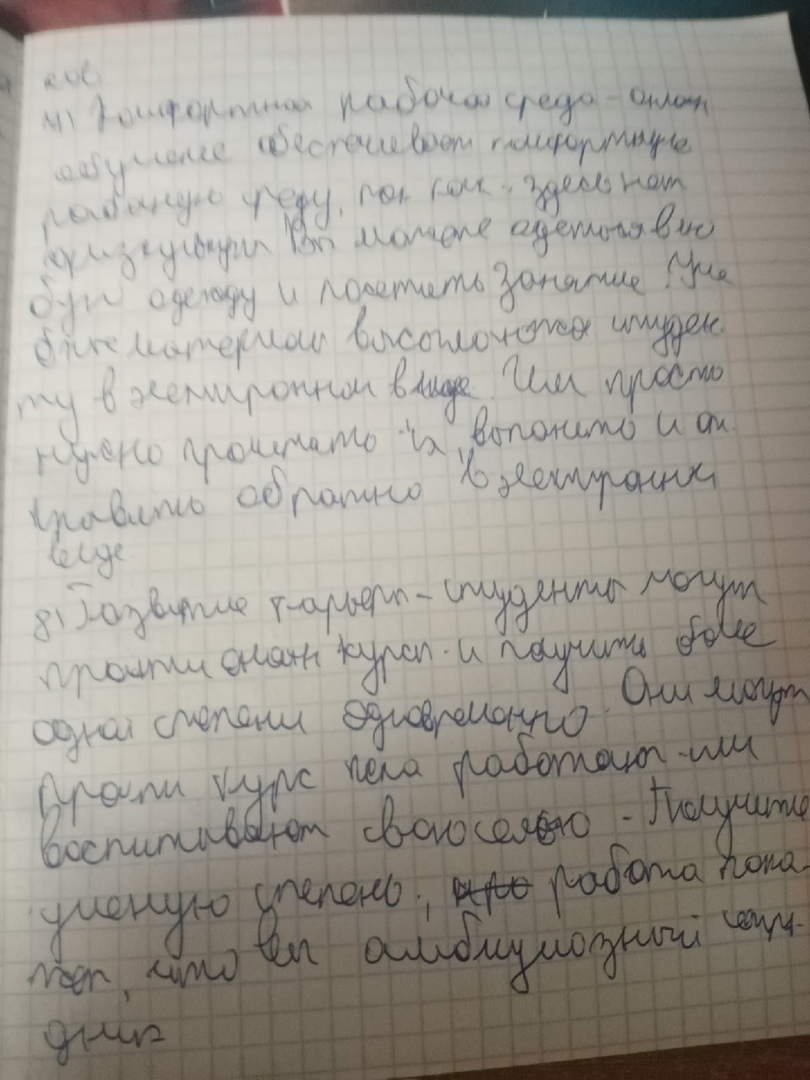 ков
4) Комфортная рабочая среда - онлан
обучение обеспечевает комфортную
рабочую среду, так как здесь нет
физкультури Вы можете одеть любю
бую одежду и посетить занятие. Уче
бние материали высылаются студен
ту в электронном виде. Им просто
нужно прочитать их, выполнить и от
править обратно в электронни
виде
8) Развитие карьеры - студенты могут
пройти онлан курсы и получить более
одной степени одновременно. Они могут
пройти курс пока работают или
воспитывают свою семью - Получите
ученую степень, работа пока-
жет, что вы амбициозный сотру-
дник